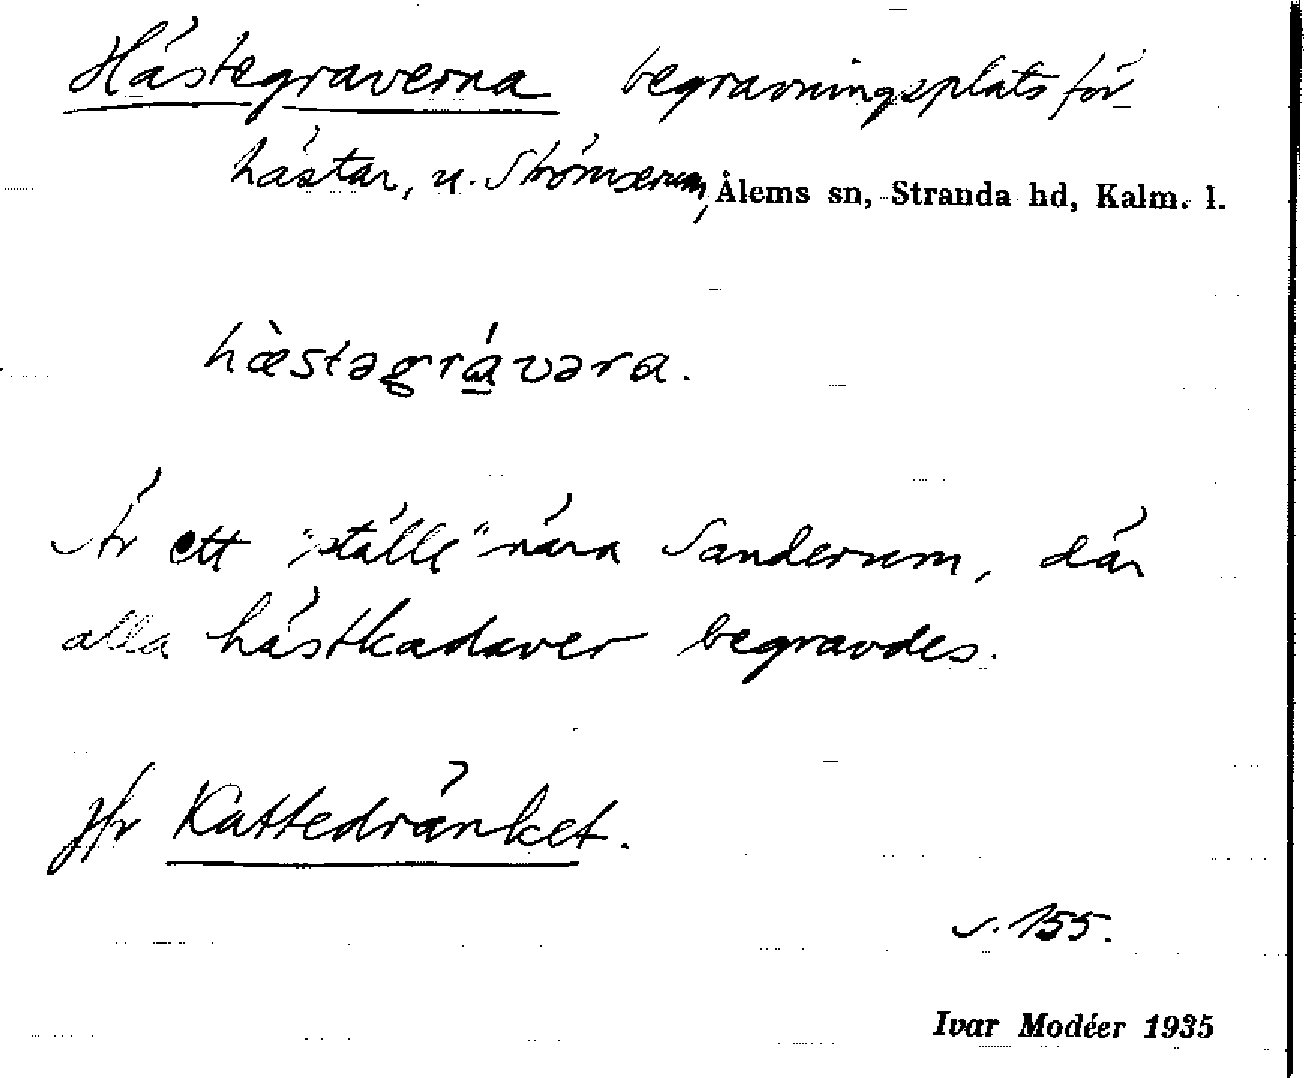 Hästegraverna begravningsplats för
hästar, u. Strömserum, Ålems sn, Stranda hd, Kalm. l.
hæ̀stəgrávəra.
Är ett "ställe" nära Sanderum, där
alla hästkadaver begravdes.
Jfr Kattedränket.
s. 155.
Ivar Modéer 1935